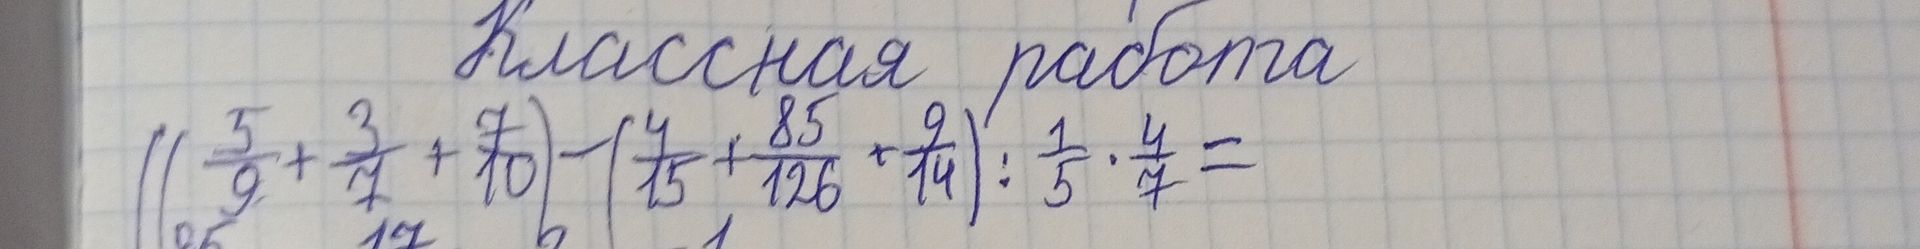 Классная работа
((5/9 + 3/7 + 7/10) - (4/15 + 85/126 + 9/14) : 1/5 · 4/7 =